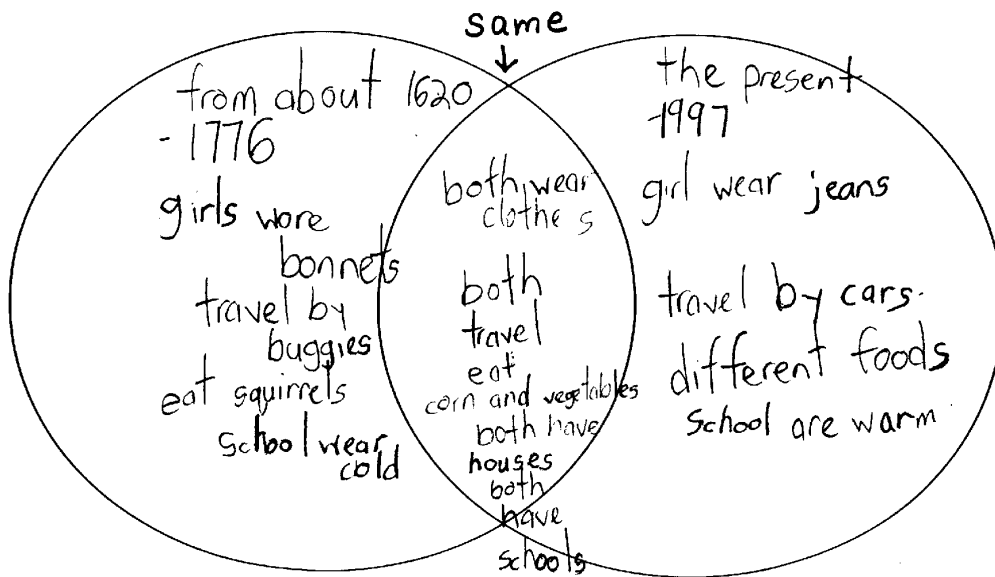 same
from about 1620
- 1776
girls wore
bonnets
travel by
buggies
eat squirrels
school wear
cold
both wear
clothes
both
travel
eat
corn and vegetables
both have
houses
both
have
schools
the present
-1997
girl wear jeans
travel by cars.
different foods
school are warm